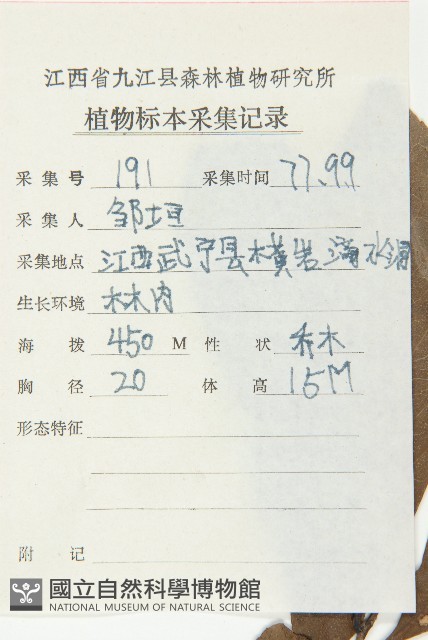 江西省九江县森林植物研究所
植物标本采集记录
采集号 191 采集时间 77.9.9
采集人 邹垣
采集地点 江西武宁县横岩滴水
生长环境 林内
海拨 450 M 性状 乔木
胸径 20 体高 15M
形态特征
附记
國立自然科學博物館
NATIONAL MUSEUM OF NATURAL SCIENCE